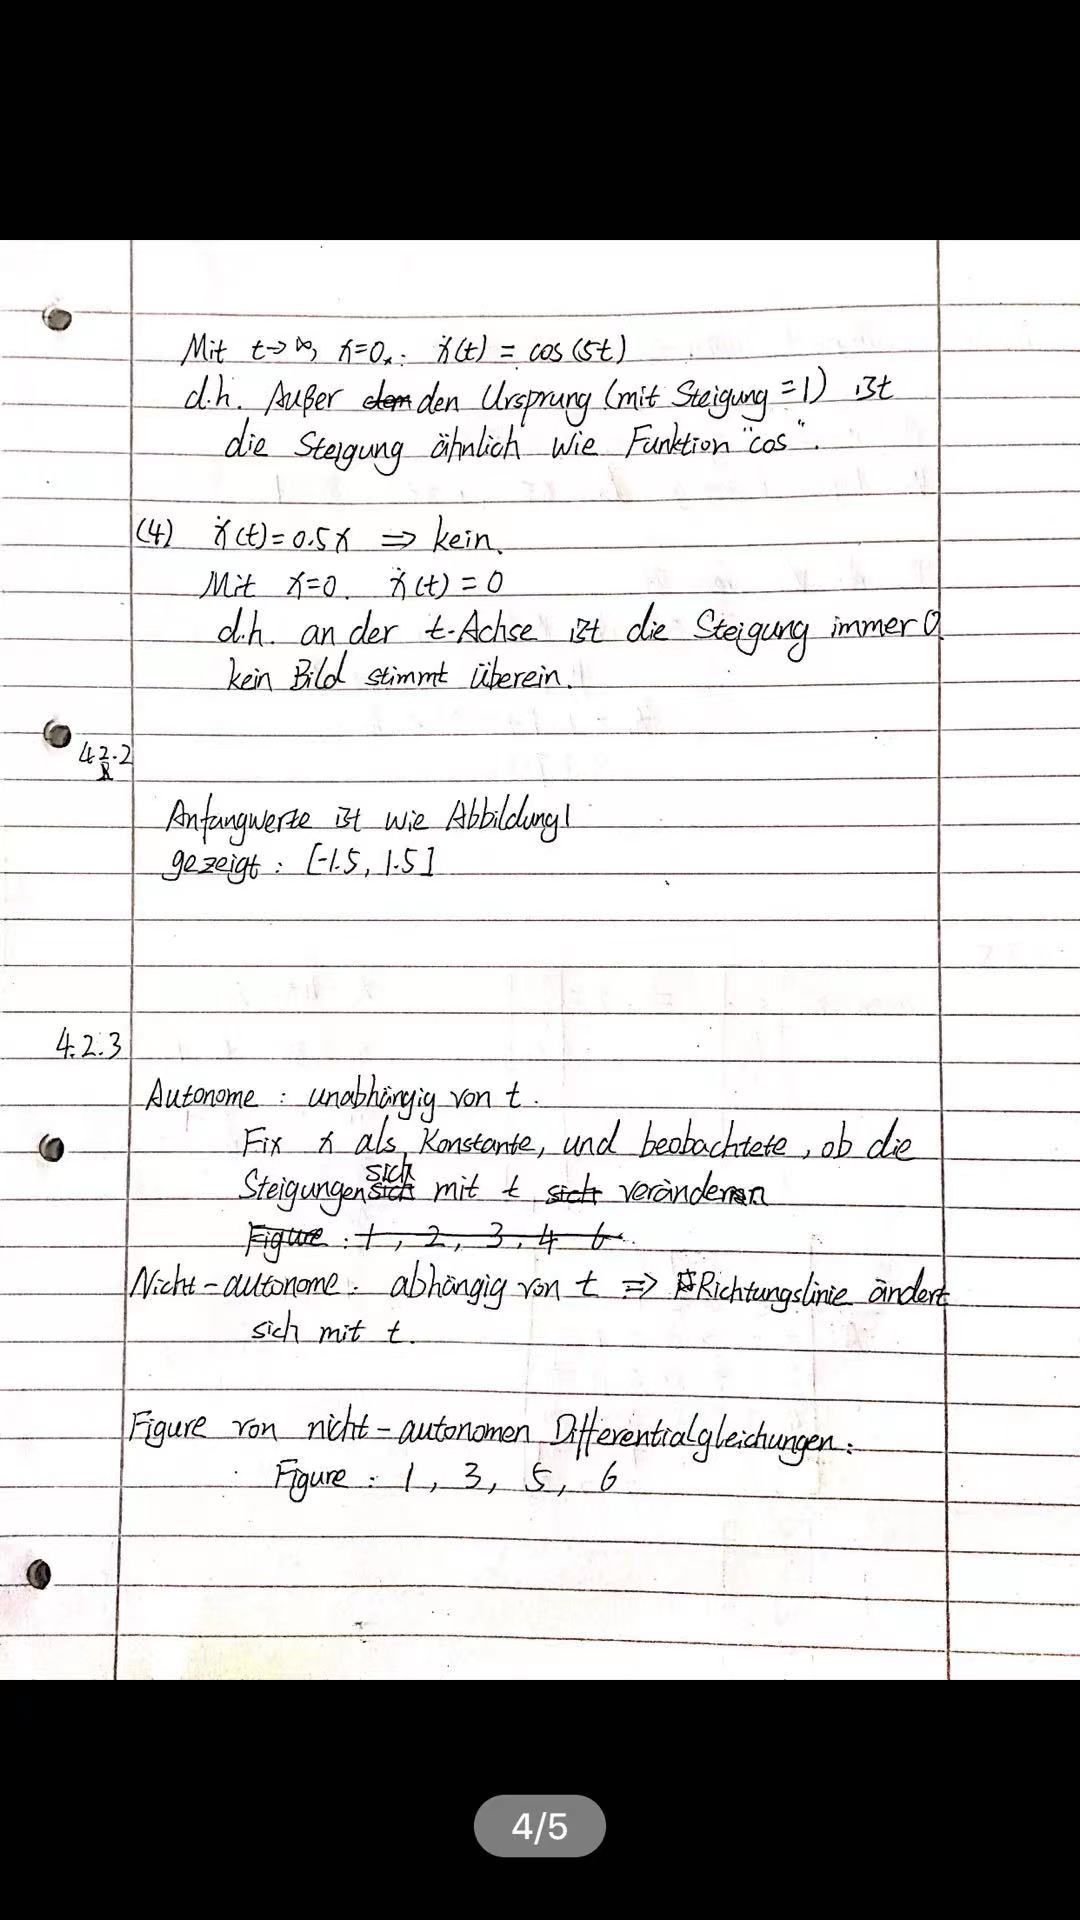 Mit t→∞, x=0. ẋ(t) = cos(5t)
d.h. Außer dem den Ursprung (mit Steigung = 1) ist
die Steigung ähnlich wie Funktion "cos".
(4) ẋ(t) = 0.5x ⇒ kein.
Mit x=0. ẋ(t) = 0
d.h. an der t-Achse ist die Steigung immer 0
kein Bild stimmt überein.
4.2.2
Anfangwerte ist wie Abbildung 1
gezeigt : [-1.5, 1.5]
4.2.3
Autonome : unabhängig von t.
Fix x als Konstante, und beobachtete, ob die
Steigungen sich mit t sich verändern
Figure : 1, 2, 3, 4 6
Nicht-autonome : abhängig von t ⇒ Richtungslinie ändert
sich mit t.
Figure von nicht-autonomen Differentialgleichungen :
Figure : 1, 3, 5, 6
4/5